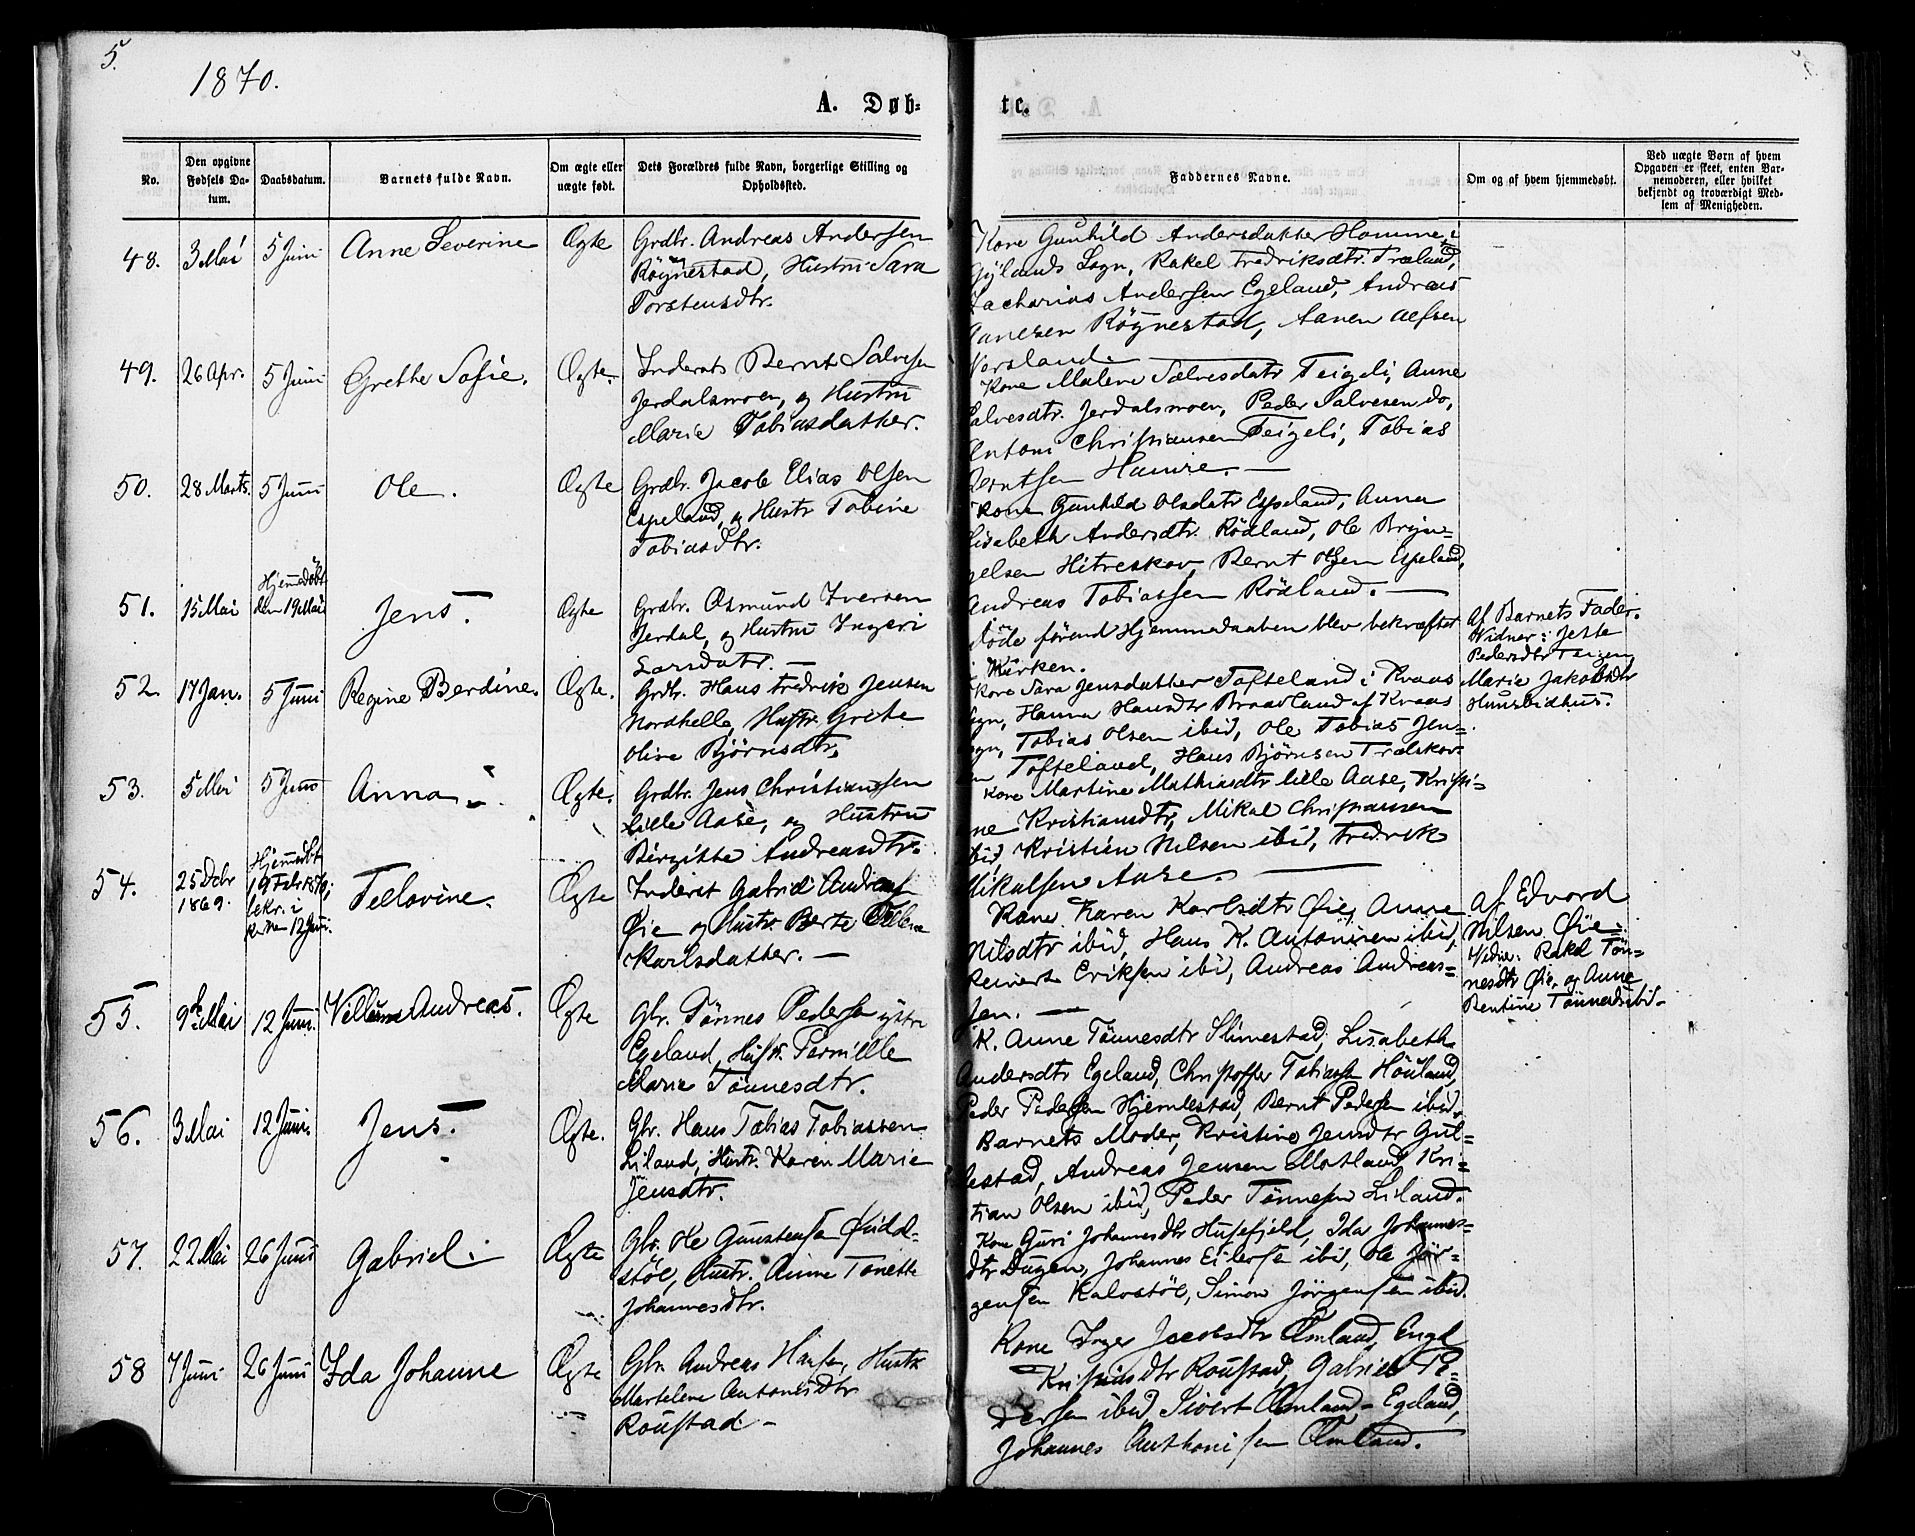 5.
1870.
A. Døb-
te.
No.
Den opgivne
Fødsels Da-
tum.
Daabsdatum.
Barnets fulde Navn.
Om ægte eller
uægte født.
Dets Forældres fulde Navn, borgerlige Stilling og
Opholdssted.
Faddernes Navne.
Om og af hvem hjemmedøbt.
Ved uægte Børn af hvem
Opgaven er skeet, enten Bar-
nemoderen, eller hvilket
bekjendt og troværdigt Med-
lem af Menigheden.
48. 3 Mai 5 Juni Anne Severine Ægte
Grdbr. Andreas Andersen
Röÿnestad, Hustru Sara
Torstensdtr.
Kone Gunhild Andersdatter Homme, i
Gylands Sogn, Rakel Fredriksdtr. Træland,
Zacharias Andersen Egeland, Andreas
Aanesen Röÿnestad, Aanen
49. 26 Apr. 5 Juni Grethe Sofie. Ægte.
Inderst Bernt Salvesen
Jerdalsmoen, og Hustru
Marie Tobiasdatter.
Kone Malene Salvesdatr Teigeli, Anne
Salvesdtr. Jerdalsmoen, Peder Salvesen do,
Antoni Christiansen Teigeli, Tobias
Berntsen Hamre. —
50. 28 Marts. 5 Juni Ole. Ægte
Grdbr. Jacob Elias Olsen
Espeland, og Hustr Tobine
Tobiasdtr.
Kone Gunhild Olsdatr Espeland, Anna
Lisabeth Andersdtr. Rödland, Ole Bryn-
jelsen Hitreskov, Bernt Olsen Espeland,
Andreas Tobiassen Rödland. —
51. 15 Mai Hjemmedöbt
den 19 Mai Jens. Ægte
Grdbr. Osmund Iversen
Jerdal, og Hustru Ingeri
Larsdatr. —
Döde förend Hjemmedaaben blev bekræftet
i Kirken.
Af Barnets Fader.
Vidner: Jette
Pedersdtr Teigen,
Marie Jakobsdtr
Hunsbidhus.
52. 17 Jan. 5 Juni Regine Berdine. Ægte.
Grdbr. Hans Fredrik Jensen
Nordhelle, Hustr. Grete
Oline Björnsdtr.
Kone Sara Jensdatter Tofteland i Kvaas
Sogn, Hanna Hansdtr Braadland af Kvaas
Sogn, Tobias Olsen ibid, Ole Tobias Jen-
sen Tofteland, Hans Björnsen Trælskov.
53. 5 Mai 5 Juni Anna. Ægte.
Grdbr. Jens Christiansen
Lille Aase, og Hustru
Birgitte Andreasdtr.
Kone Martine Mathiasdtr lille Aase, Kristi-
ne Kristiansdtr, Mikal Christiansen
ibid, Kristien Nilsen ibid, Fredrik
Mikalsen Aase. —
54. 25 Debr
1869. Hjemmedbt
19 Febr 1870;
bekr. i
Kirken 12 Juni. Tellovine. Ægte
Inderst Gabriel Andreas
Øie og Hustr. Berte
Karlsdatter. —
Kone Karen Karlsdtr Øie, Anne
Nilsdtr ibid, Hans K. Antonisen ibid,
Reinert Eriksen ibid, Andreas Andreas-
sen. —
Af Edvard
Nilsen Øie.
Vidner: Rakel Tön-
nesdtr Øie, og Anne
Bentine Tönnesdtr ibid.
55. 9de Mai 12 Juni. Villum Andreas. Ægte
Gbr. Tönnes Pedersen ytre
Egeland, Hustr. Pernille
Marie Tönnesdtr.
K. Anne Tönnesdtr Slimestad, Lisabeth
Andersdtr Egeland, Christoffer Tobiassen Höiland,
Peder Pedersen Hjemlestad, Bernt Pedersen ibid.
56. 3 Mai 12 Juni. Jens. Ægte.
Gbr. Hans Tobias Tobiassen
Liland, Hustr. Karen Marie
Jensdtr.
Barnets Moder, Kristine Jensdtr Gul-
lestad, Andreas Jensen Motland, Kri-
stian Olsen ibid, Peder Tönnesen Liland.
57. 22 Mai 26 Juni Gabriel. Ægte
Gbr. Ole Gunstensen
stöl, Hustr. Anne Tonette
Johannesdtr.
Kone Guri Johannesdtr Husefjeld, Ida Johannes-
dtr Dugen, Johannes Eilersen ibid, Ole Jör-
gensen Kalvstöl, Simon Jörgensen ibid.
58 7 Juni 26 Juni Ida Johanne Ægte
Gbr Andreas Hansen, Hustr.
Martelene Antonisdtr
Roustad. —
Kone Inger Jacobsdtr Omland, Engel
Kristiansdtr Roustad, Gabriel Pe-
dersen ibid, Sivert Omland - Egeland,
Johannes Anthonisen Omland.